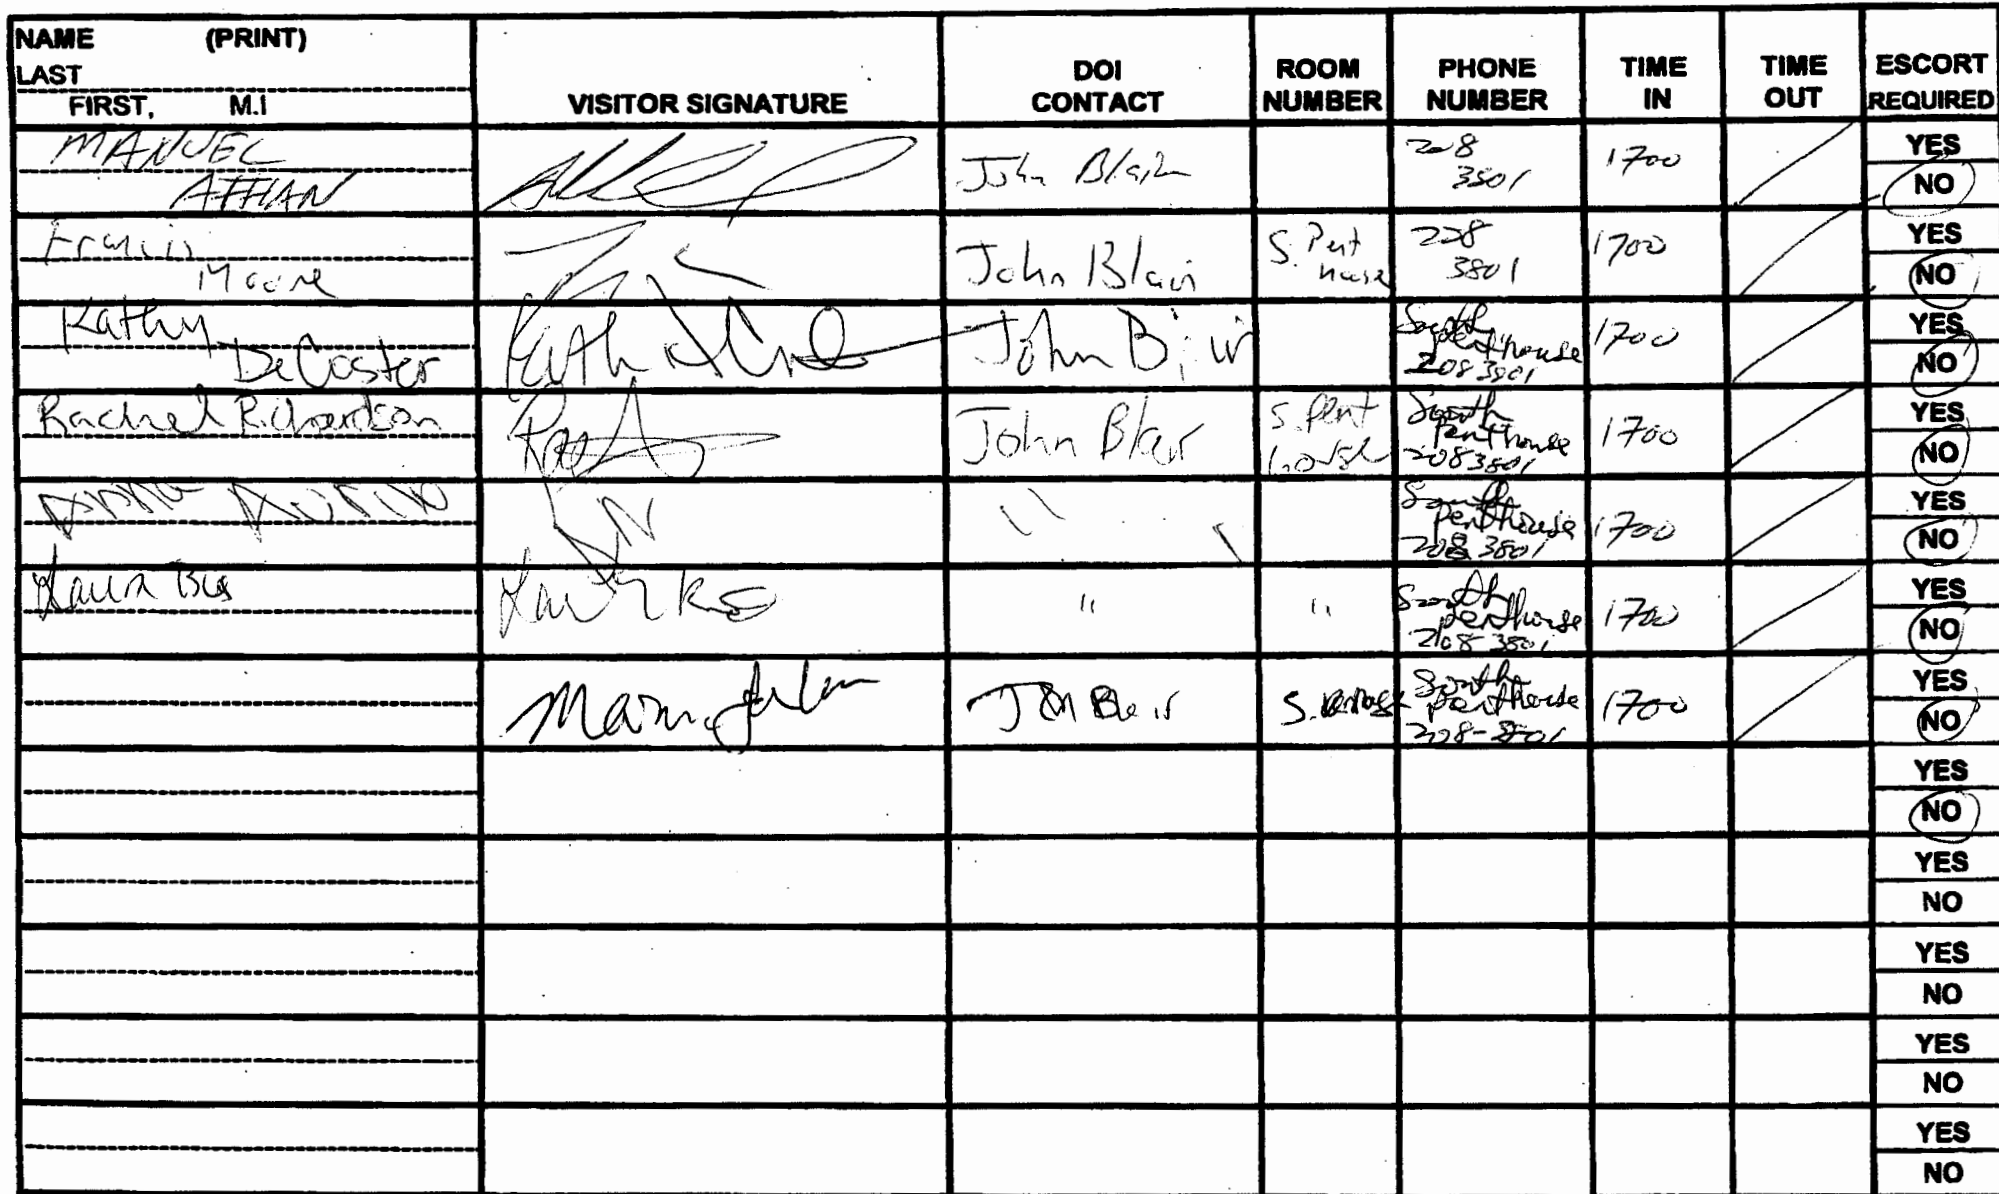 NAME (PRINT)
LAST
FIRST, M.I
VISITOR SIGNATURE
DOI CONTACT
ROOM NUMBER
PHONE NUMBER
TIME IN
TIME OUT
ESCORT REQUIRED
MANUEL
ATHAN
John Blair
208
3801
1700
YES
NO
Francis
Moore
John Blair
S. Pent
house
208
3801
1700
YES
NO
Kathy
DeCoster
John Blair
South
penthouse
208 3801
1700
YES
NO
Rachel Richardson
John Blair
S. Pent
house
South
penthouse
208 3801
1700
YES
NO
"
South
penthouse
208 3801
1700
YES
NO
Laura
"
"
South
penthouse
208-3801
1700
YES
NO
Blair
S.
South
penthouse
208-3801
1700
YES
NO
YES
NO
YES
NO
YES
NO
YES
NO
YES
NO